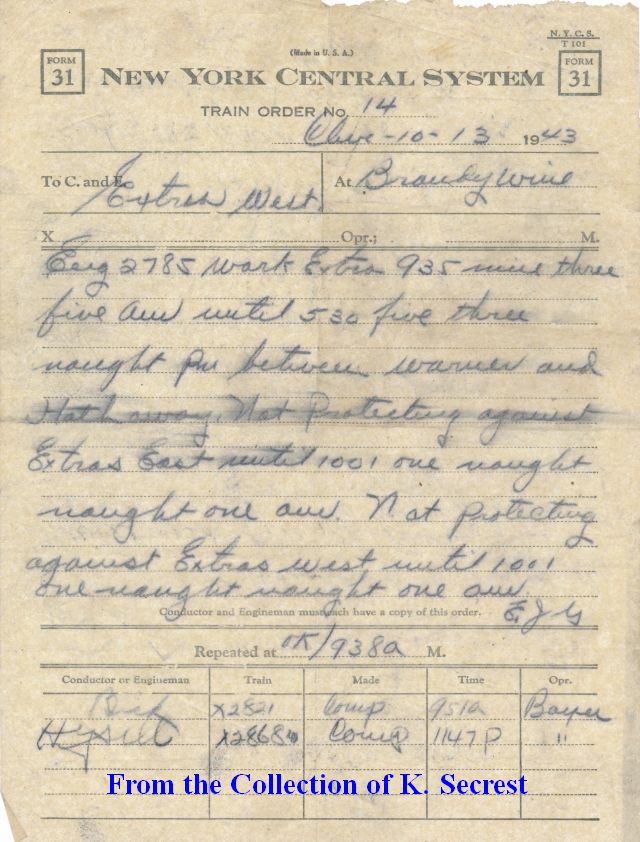 N. Y. C. S.
T 101
(Made in U. S. A.)
FORM 31
NEW YORK CENTRAL SYSTEM
FORM 31
TRAIN ORDER No. 14
Cleve - 10 - 13 1943
To C. and E. Extras West. At Brandywine
X Opr.; M.
Eng 2785 work Extra 935 nine three
five am until 530 five three
naught pm between Warner and
Hathaway. Not Protecting against
Extras East until 1001 one naught
naught one am. Not protecting
against Extras west until 1001
one naught naught one am
Conductor and Engineman must each have a copy of this order.
E J G
Repeated at OK/938a M.
Conductor or Engineman Train Made Time Opr.
X2821 Comp 951a Boyer
X2868 Comp 1147p "
From the Collection of K. Secrest